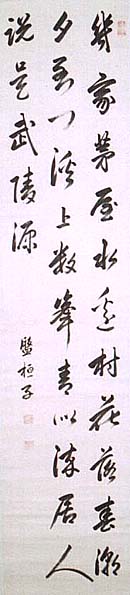 幾家茅屋水邊村花落春潮
夕到門溪上數峯青似染居人
說是武陵源
盤桓子